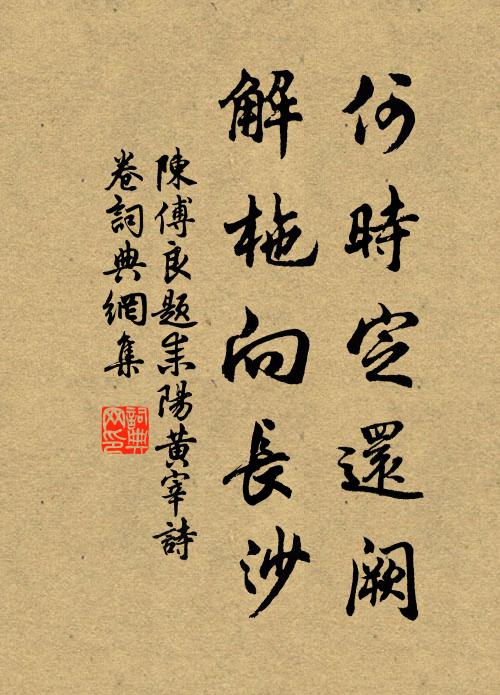 何時定還闕
解柂向長沙
陳傅良題耒陽黃宰詩
卷詞典網集
詞典
网印